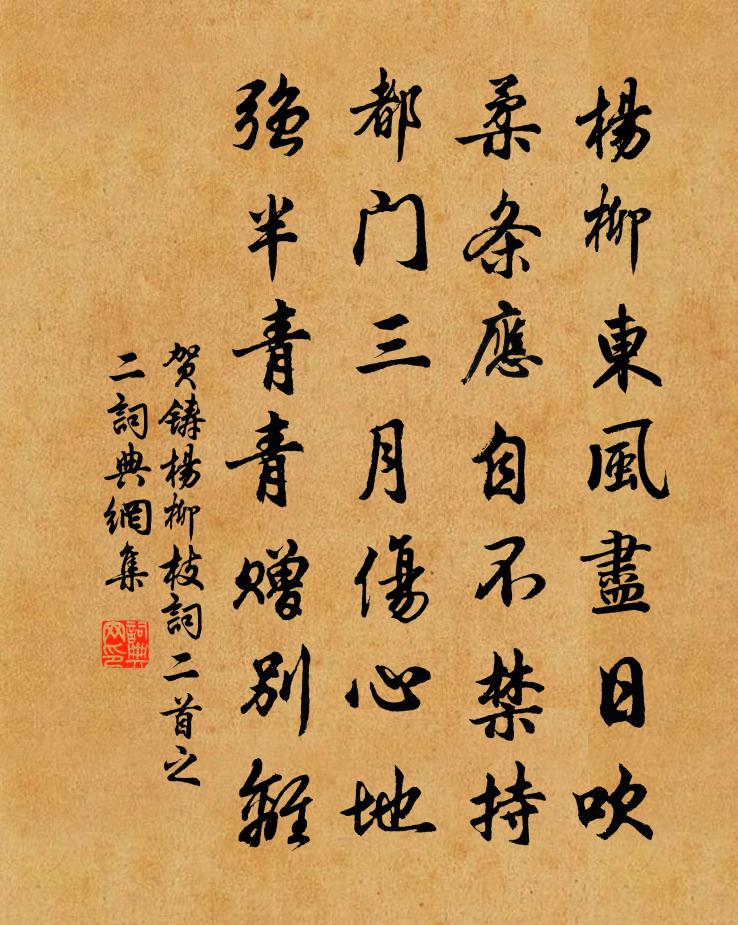 楊柳東風盡日吹
柔条應自不禁持
都门三月傷心地
強半青青贈別離
贺鑄楊柳枝詞二首之
二詞典網集
詞典
网印